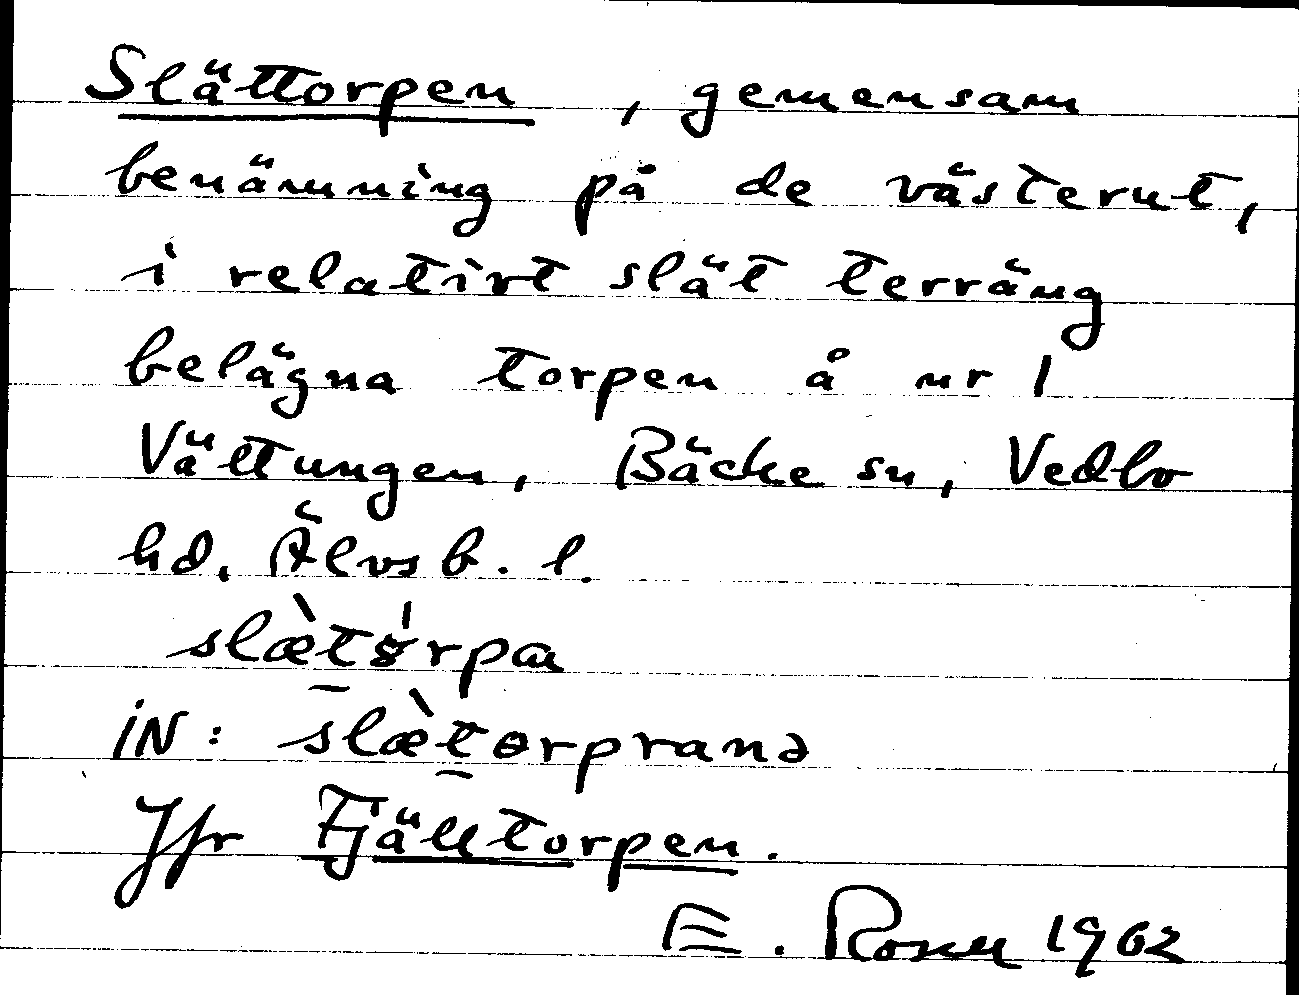 Slättorpen, gemensam
benämning på de västerut,
i relativt slät terräng
belägna torpen å nr 1
Vättungen, Bäcke sn, Vedbo
hd. Älvsb. l.
iN:
Jfr Fjälltorpen.
E. Rosen 1962